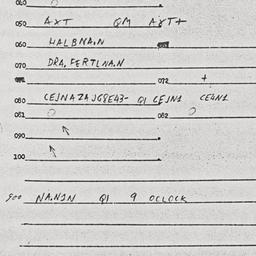 040
050 AXT QM AXT+
060 WALBMAIN
070 DRA. FERTLNAN
072 +
080 CEJNAZAJG8E43- QI CEJN1 CE4N1
081 082
090
100
900 NANJN QI 9 OCLOCK